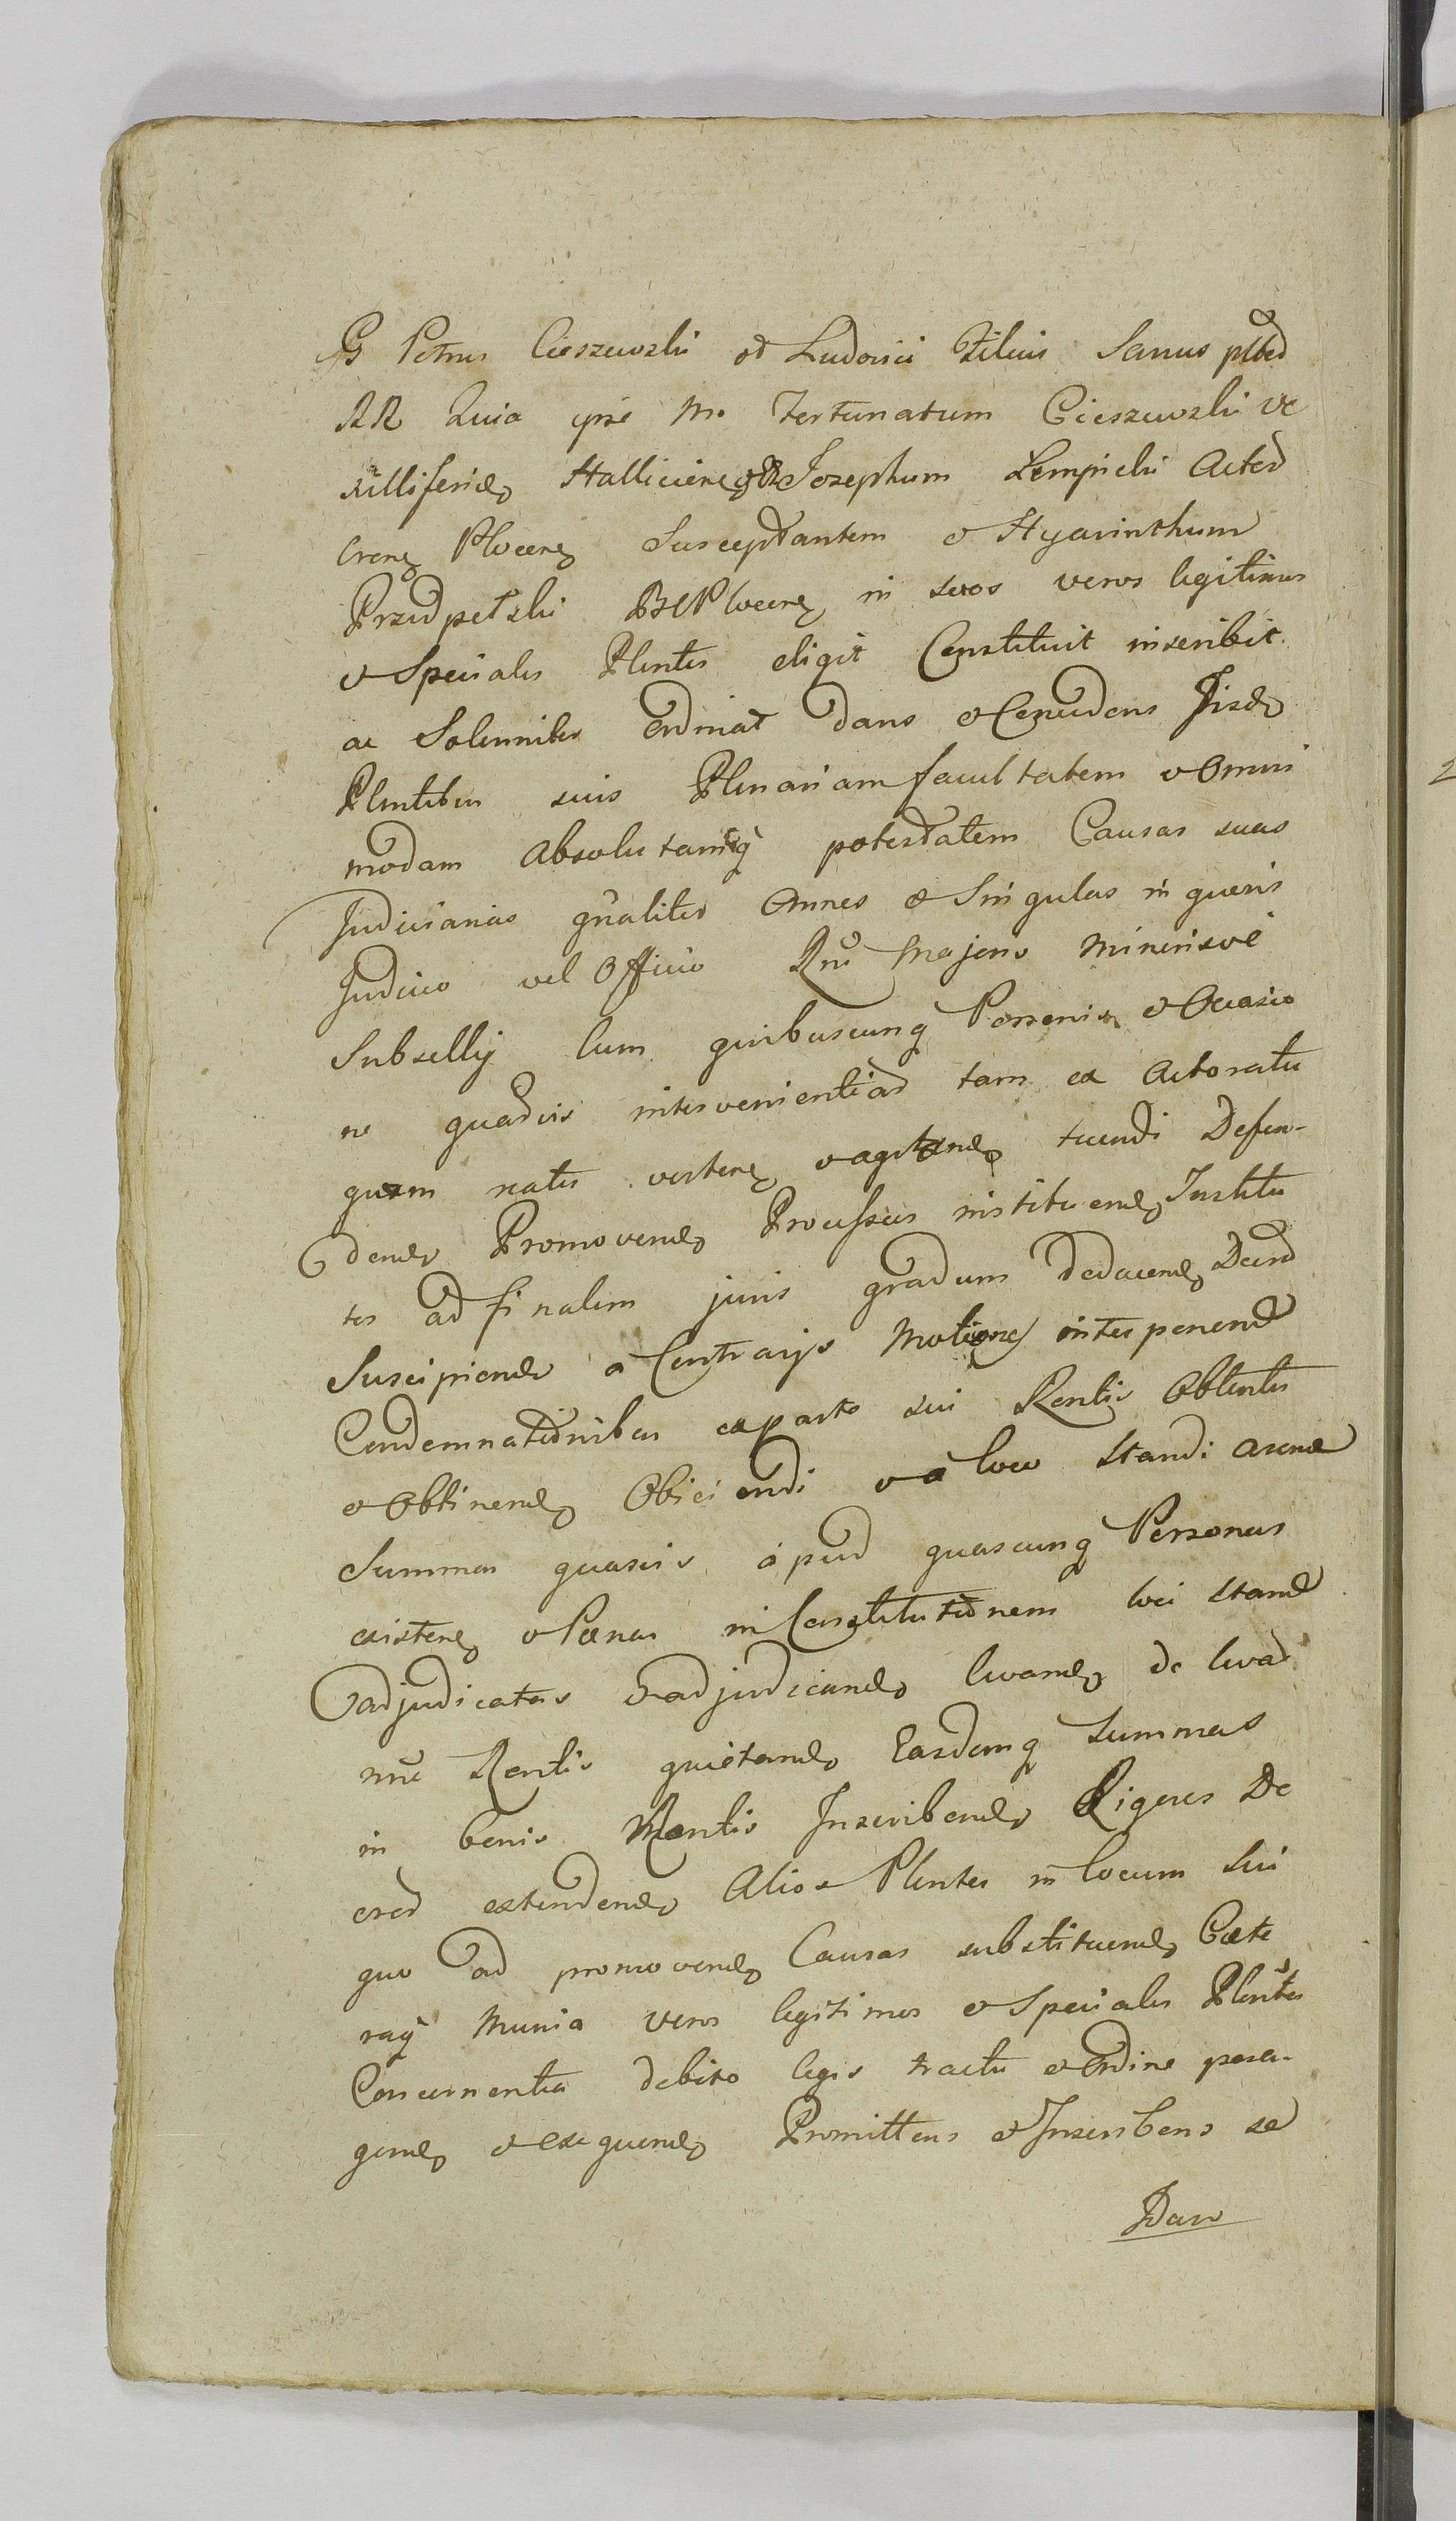 G Petrus Cieszewski od Ludovici Filius Sanus pltbd
RR Quia ipse M. Fortunatum Cieszewski Ve
xilliferid Halliciens et Josephum Lempicki Acted
Crens Plocens Susceptantem et Hyacinthum
Przedpelski BCPlocens in suos veros legitimos
et Speciales Plentes eligit Constituit inscribit
ac Solenniter Ordinat dans et Concedens Jisd
Plentibus suis Plenariam facultatem et Omni
modam Absolutamq potestatem Causas suas
Judiciarias gnaliter Omnes et Singulas in quovis
Judicio vel Officio Rni Majoris Minorisve
Subsellij Cum quibuscunq Personis et Occasio
ne quadvis intervenientiad tam ex Actoratu
quam reatu vertens et agitand tuendi Defen-
dend Promovend Processus instituend Institu
tos ad finalem juris gradum deducend Decrd
Suscipiend a Contrarijs Motione interponend
Condemnationibus ex parte sui Rentis Obtentis
et Obtinend Obiciendi et a loco standi arcend
Summas quasvis apud quascunq Personas
existens et Poenas in Constitutionem loci stand
adjudicatas et adjudicand levand de levad
nne Rentis quietand Easdemq Summas
in bonis Rentis Inscribend Rigores De
cred extendend Alios Plentes in locum sui
quo ad promovend Causas substituend Caete
raq Munia veros legitimos et Speciales Plentes
Concernentia debito legis tractu et Ordine pera-
gend et exequend Promittens et Inscribens se
Daw